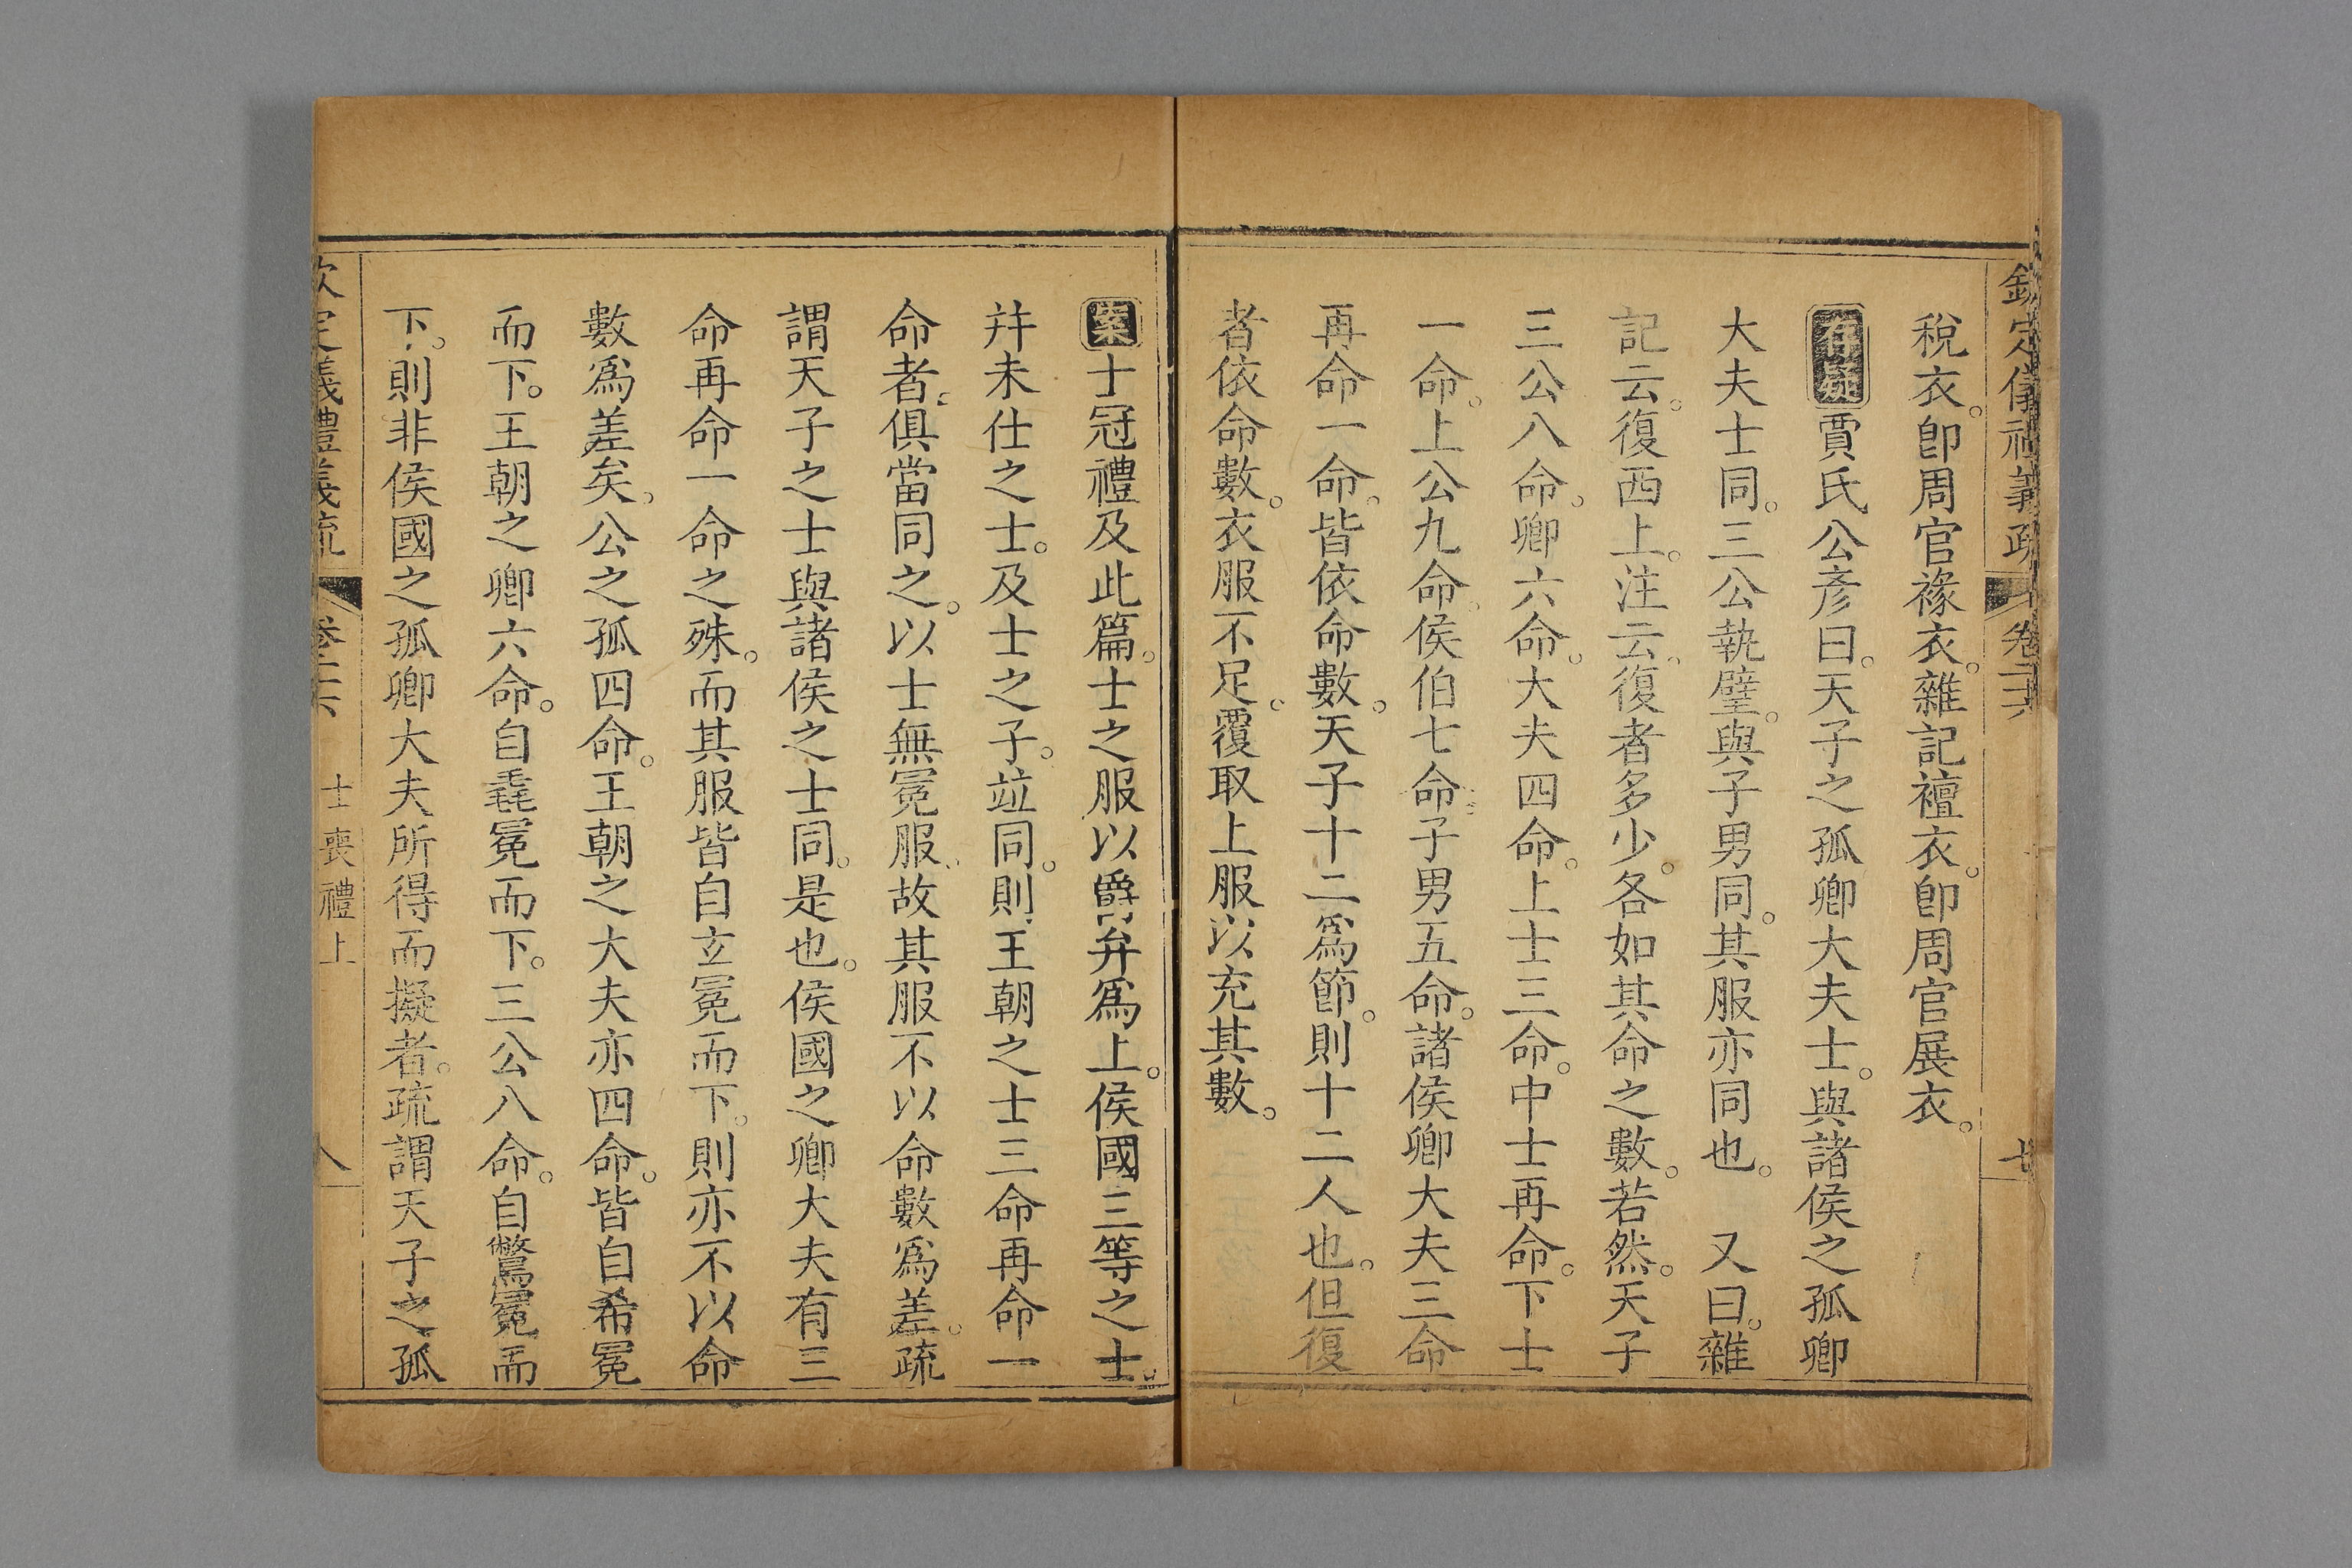 欽定儀禮義疏 卷二十六 七
稅衣。卽周官褖衣。雜記襢衣。卽周官展衣。
存疑賈氏公彥曰。天子之孤卿大夫士。與諸侯之孤卿
大夫士同。三公執璧。與子男同。其服亦同也。 又曰。雜
記云。復西上。注云。復者多少。各如其命之數。若然。天子
三公八命。卿六命。大夫四命。上士三命。中士再命。下士
一命。上公九命。侯伯七命。子男五命。諸侯卿大夫三命
再命一命。皆依命數。天子十二爲節。則十二人也。但復
者依命數。衣服不足。覆取上服以充其數。
案士冠禮及此篇。士之服以爵弁爲上。侯國三等之士。
幷未仕之士。及士之子。竝同。則王朝之士三命再命一
命者。俱當同之。以士無冕服。故其服不以命數爲差。疏
謂天子之士與諸侯之士同。是也。侯國之卿大夫有三
命再命一命之殊。而其服皆自玄冕而下。則亦不以命
數爲差矣。公之孤四命。王朝之大夫亦四命。皆自希冕
而下。王朝之卿六命。自毳冕而下。三公八命。自鷩冕而
下。則非侯國之孤卿大夫所得而擬者。疏謂天子之孤
欽定義禮義疏 卷二十六 士喪禮上 八